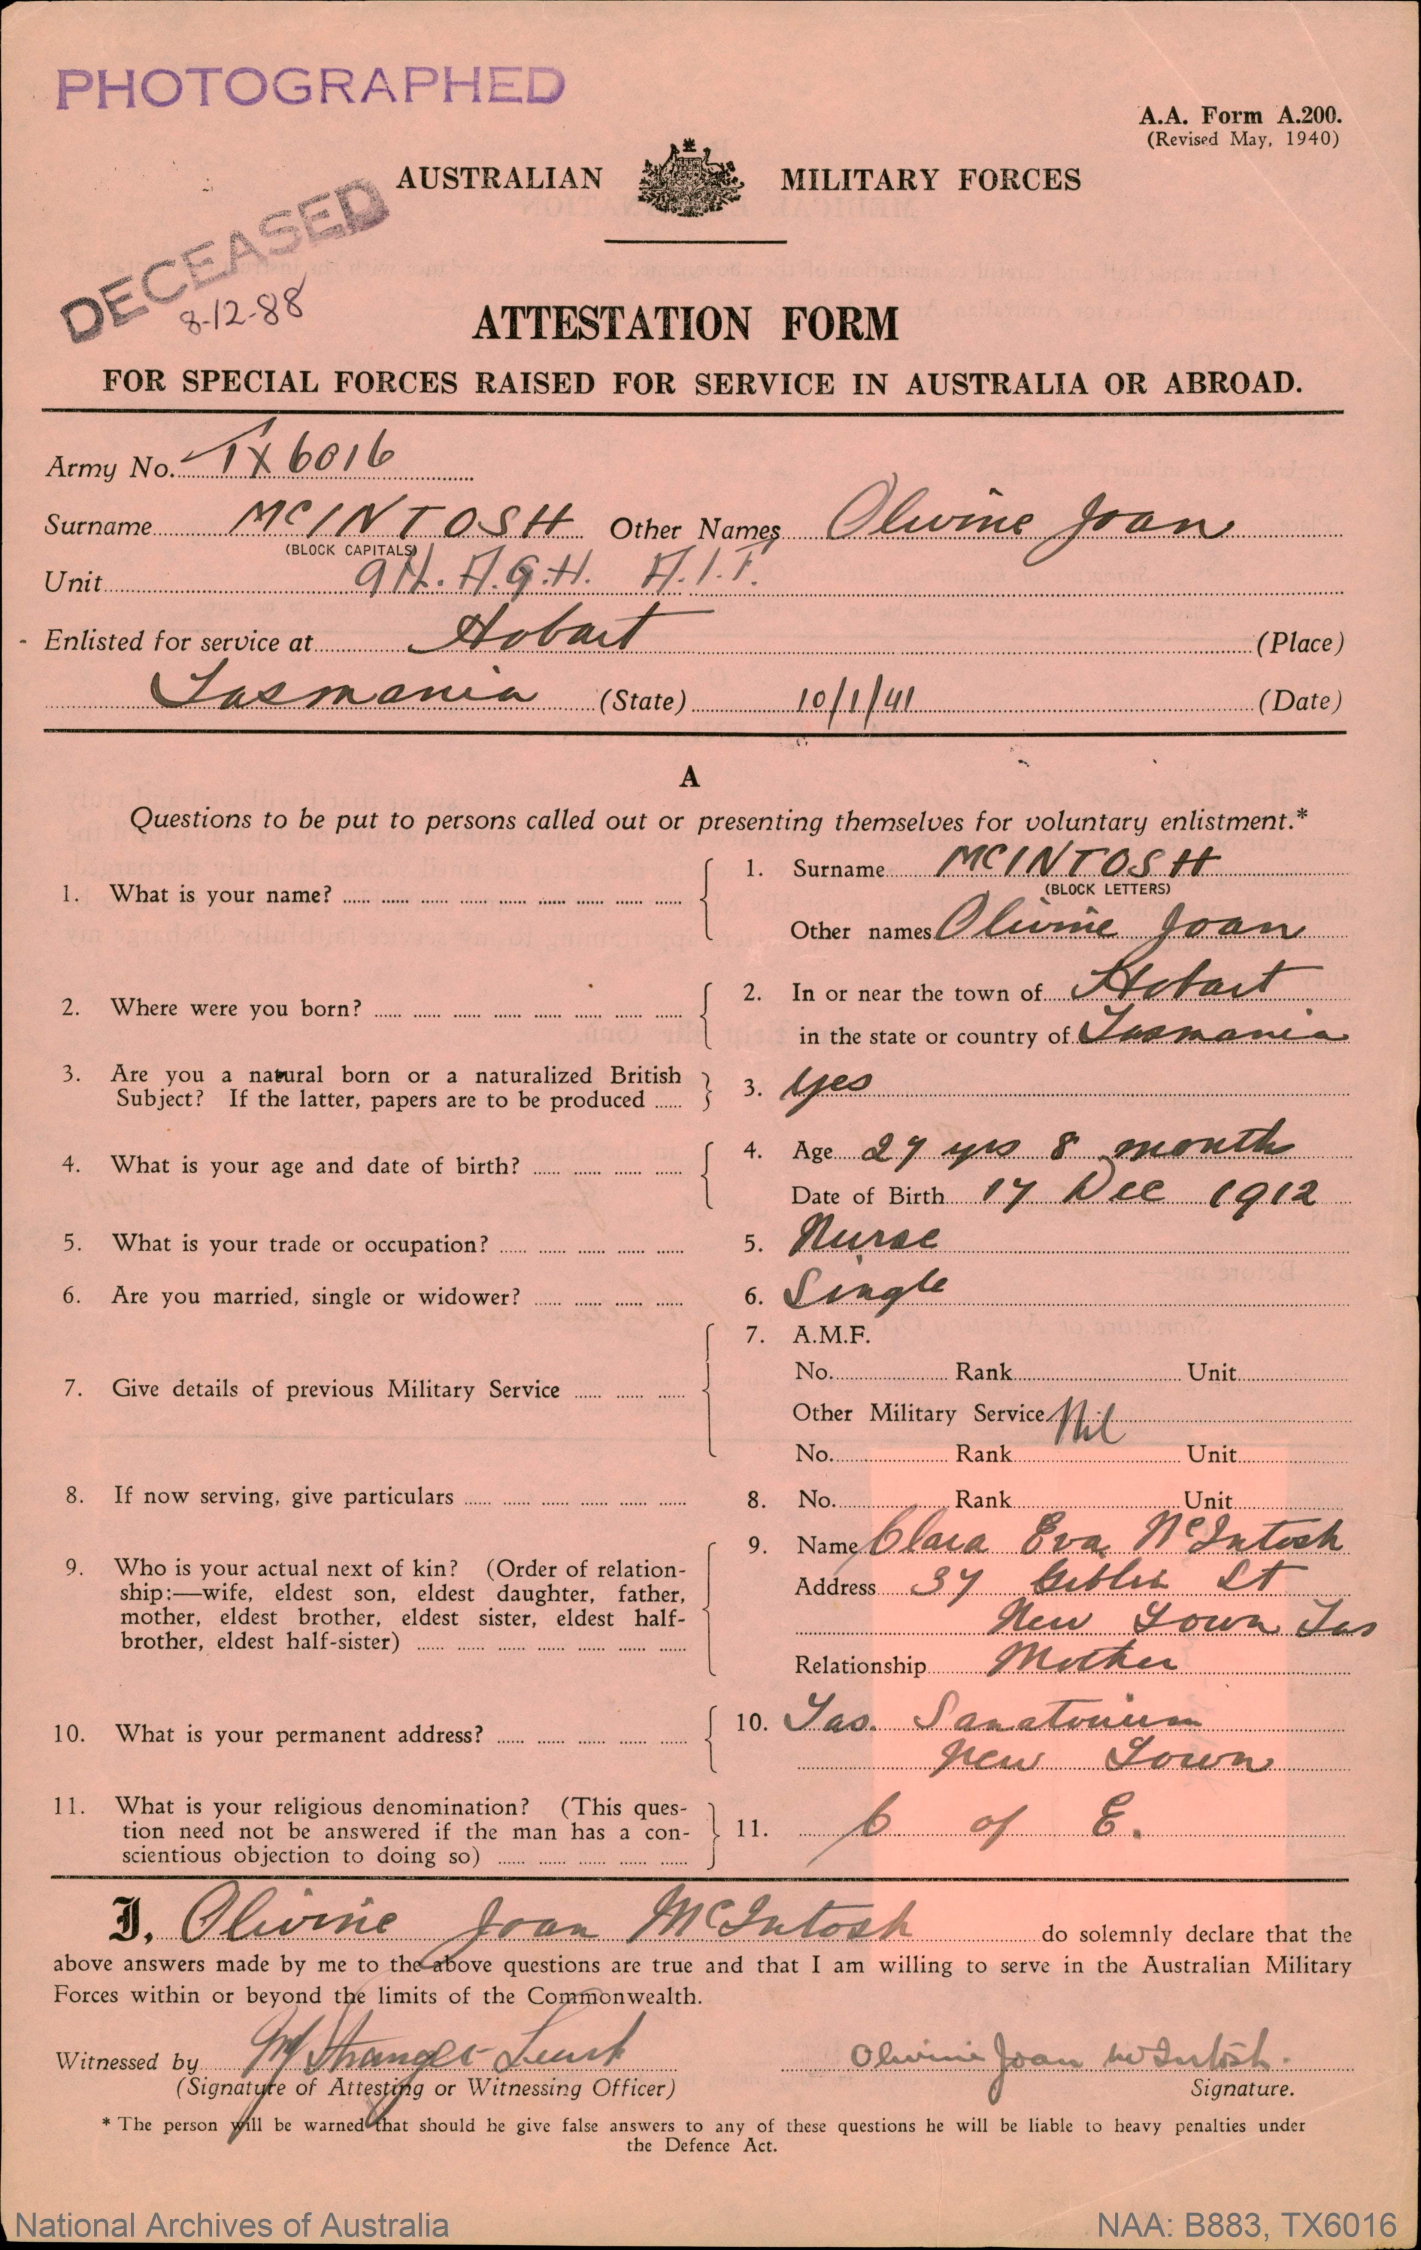 PHOTOGRAPHED
A.A. Form A.200.
(Revised May, 1940)
AUSTRALIAN MILITARY FORCES
DECEASED
8-12-88
ATTESTATION FORM
FOR SPECIAL FORCES RAISED FOR SERVICE IN AUSTRALIA OR ABROAD.
Army No. TX6016
Surname MCINTOSH Other Names Olivine Joan
(BLOCK CAPITALS)
Unit 9th. A.G.H. A.I.F.
Enlisted for service at Hobart (Place)
Tasmania (State) 10/1/41 (Date)
A
Questions to be put to persons called out or presenting themselves for voluntary enlistment.*
1. What is your name? 1. Surname MCINTOSH
(BLOCK LETTERS)
Other names Olivine Joan
2. Where were you born? 2. In or near the town of Hobart
in the state or country of Tasmania
3. Are you a natural born or a naturalized British
Subject? If the latter, papers are to be produced 3. Yes
4. What is your age and date of birth? 4. Age 27 yrs 8 months
Date of Birth 17 Dec 1912
5. What is your trade or occupation? 5. Nurse
6. Are you married, single or widower? 6. Single
7. Give details of previous Military Service 7. A.M.F.
No. Rank Unit
Other Military Service Nil
No. Rank Unit
8. If now serving, give particulars 8. No. Rank Unit
9. Who is your actual next of kin? (Order of relation-
ship:—wife, eldest son, eldest daughter, father,
mother, eldest brother, eldest sister, eldest half-
brother, eldest half-sister)
9. Name Clara Eva McIntosh
Address 37 Giblin St
New Town Tas
Relationship Mother
10. What is your permanent address? 10. Tas. Sanatorium
New Town
11. What is your religious denomination? (This ques-
tion need not be answered if the man has a con-
scientious objection to doing so) 11. C of E.
I, Olivine Joan McIntosh do solemnly declare that the
above answers made by me to the above questions are true and that I am willing to serve in the Australian Military
Forces within or beyond the limits of the Commonwealth.
Witnessed by Lieut Olivine Joan McIntosh.
(Signature of Attesting or Witnessing Officer) Signature.
* The person will be warned that should he give false answers to any of these questions he will be liable to heavy penalties under
the Defence Act.
National Archives of Australia NAA: B883, TX6016